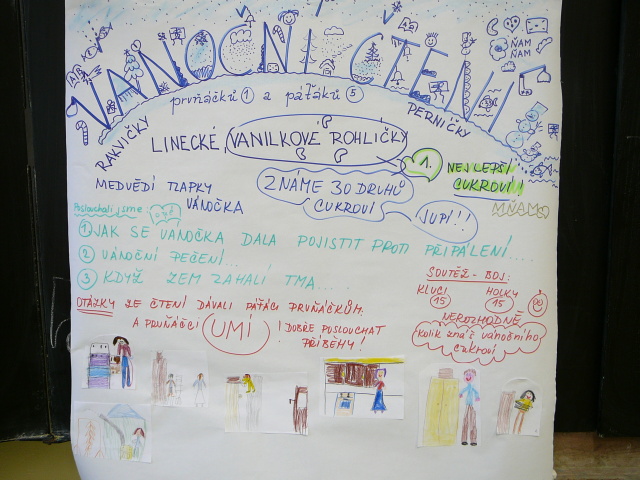 VÁNOČNÍ ČTENÍ
ŇAM
ŇAM
prvňáčků ① a páťáků ⑤
PERNIČKY
RAKVIČKY
LINECKÉ VANILKOVÉ ROHLÍČKY
1. NEJLEPŠÍ
CUKROVÍ!
MŇAM
MEDVĚDÍ TLAPKY
VÁNOČKA
ZNÁME 30 DRUHŮ
CUKROVÍ
JUPÍ!!
Poslouchali jsme
① JAK SE VÁNOČKA DALA POJISTIT PROTI PŘIPÁLENÍ....
② VÁNOČNÍ PEČENÍ...
③ KDYŽ ZEM ZAHALÍ TMA....
SOUTĚŽ - BOJ:
KLUCI HOLKY
15 15
NEROZHODNĚ
OTÁZKY ZE ČTENÍ DÁVALI PÁŤÁCI PRVŇÁČKŮM
A PRVŇÁČCI UMÍ! DOBŘE POSLOUCHAT
PŘÍBĚHY!
Kolik znáš vánočního
cukroví